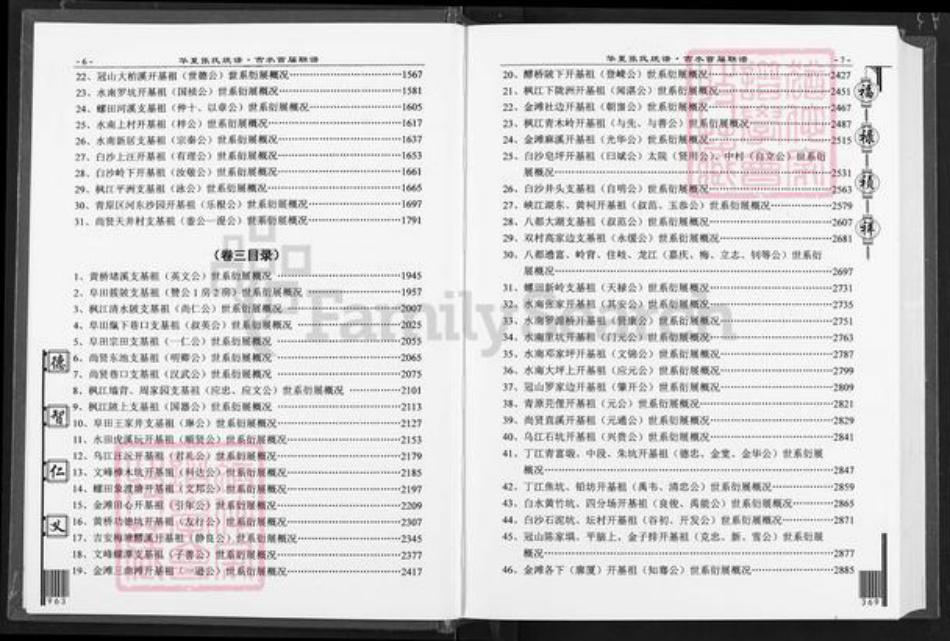 - 6 -
华夏张氏统谱·吉水首届联谱
22、冠山大柏溪开基祖（世德公）世系衍展概况 1567
23、水南罗坑开基祖（国桢公）世系衍展概况 1581
24、螺田河溪支基祖（仲十、以章公）世系衍展概况 1605
25、水南上村开基祖（梓公）世系衍展概况 1617
26、水南新居支基祖（宗泰公）世系衍展概况 1637
27、白沙上汪开基祖（有理公）世系衍展概况 1653
28、白沙岭下开基祖（汝敬公）世系衍展概况 1661
29、枫江平洲支基祖（泳公）世系衍展概况 1665
30、青原区河东沙园开基祖（乐根公）世系衍展概况 1697
31、尚贤天井村支基祖（ 世系衍展概况 1791
（卷三目录）
1、黄桥堵溪支基祖（英文公）世系衍展概况 1945
2、阜田 陂支基祖（赞公1房2房）世系衍展概况 1957
3、枫江清水陂支基祖（尚仁公）世系衍展概况 2007
4、阜田 下巷口支基祖（叔英公）世系衍展概况 2025
5、阜田宗田支基祖（一仁公）世系衍展概况 2055
6、尚贤东池支基祖（明卿公）世系衍展概况 2065
7、尚贤巷口支基祖（汉武公）世系衍展概况 2075
8、枫江 背、周家园支基祖（应忠、应文公）世系衍展概况 2101
9、枫江陂上支基祖（国器公）世系衍展概况 2113
10、阜田王家井支基祖（琳公）世系衍展概况 2127
11、水田虎溪坑开基祖（顺贤公）世系衍展概况 2153
12、乌江 开基祖（君礼公）世系衍展概况 2179
13、文峰樟木坑开基祖（科达公）世系衍展概况 2185
14、螺田象渡塘开基祖（文邦公）世系衍展概况 2197
15、金滩田心开基祖（引年公）世系衍展概况 2209
16、黄桥功德坑开基祖（友行公）世系衍展概况 2307
17、吉安梅塘 溪开基祖（静良公）世系衍展概况 2345
18、文峰螺潭支基祖（子善公）世系衍展概况 2377
19、金滩三曲滩开基祖（一逊公）世系衍展概况 2417
德
智
仁
义
963
华夏张氏统谱·吉水首届联谱
- 7 -
20、醪桥陂下开基祖（登嵘公）世系衍展概况 2427
21、枫江下陇洲开基祖（闻湛公）世系衍展概况 2451
22、金滩社边开基祖（朝 公）世系衍展概况 2467
23、枫江青木岭开基祖（与先、与善公）世系衍展概况 2487
24、金滩麻溪开基祖（光华公）世系衍展概况 2515
25、白沙皂坪开基祖（曰斌公）太院（贤用公）、中村（自立公）世系衍
展概况 2531
26、白沙井头支基祖（自明公）世系衍展概况 2563
27、峡江湖东、黄祠开基祖（叔范、玉恭公）世系衍展概况 2579
28、八都大湖支基祖（叔范公）世系衍展概况 2607
29、双村高家边支基祖（永缓公）世系衍展概况 2681
30、八都遭富、岭背、住岐、龙江（嘉庆、梅、立志、钊等公）世系衍
展概况 2697
31、螺田新岭支基祖（天禄公）世系衍展概况 2731
32、水南张家开基祖（其安公）世系衍展概况 2735
33、水南罗渡桥开基祖（贤康公）世系衍展概况 2751
34、水南里坑开基祖（门元公）世系衍展概况 2763
35、水南邓家坪开基祖（文锦公）世系衍展概况 2787
36、水南大坪上开基祖（应元公）世系衍展概况 2799
37、冠山罗家边开基祖（肇开公）世系衍展概况 2809
38、青原 开基祖（元公）世系衍展概况 2821
39、尚贤直溪开基祖（元通公）世系衍展概况 2829
40、乌江石坑开基祖（兴贵公）世系衍展概况 2841
41、丁江青富塅、中段、朱坑开基祖（德忠、金堂、金华公）世系衍展
概况 2847
42、丁江鱼坑、铅坊开基祖（禹韦、清忠公）世系衍展概况 2859
43、白水黄竹坑、四分场开基祖（良俊、禹能公）世系衍展概况 2865
44、白沙石泥坑、坛村开基祖（谷初、开发公）世系衍展概况 2871
45、冠山陈家埧、平脑上、金子排开基祖（克忠、新、雪公）世系衍展
概况 2877
46、金滩各下（廖厦）开基祖（知骞公）世系衍展概况 2885
福
禄
祯
祥
369
FamilySearch